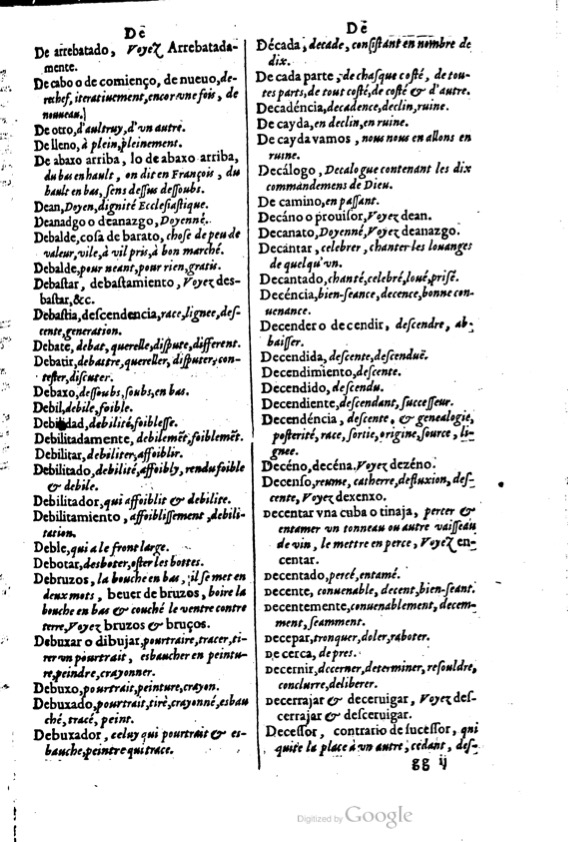 Dē
De arrebatado, Voyez Arrebatada-
mente.
De cabo o de comienço, de nueuo, de-
rechef, iteratiuement, encor vne fois, de
nouueau.
De otro, d'aultruy, d'vn autre.
De lleno, à plein, pleinement.
De abaxo arriba, lo de abaxo arriba,
du bas en hault, on dit en François, du
hault en bas, ſens deſſus deſſoubs.
Dean, Doyen, dignité Eccleſiaſtique.
Deanadgo o deanazgo, Doyenné.
Debalde, coſa de barato, choſe de peu de
valeur, vile, à vil pris, à bon marché.
Debalde, pour neant, pour rien, gratis.
Debaſtar, debaſtamiento, Voyez des-
baſtar, &c.
Debaſtia, deſcendencia, race, lignee, deſ-
cente, generation.
Debate, debat, querelle, diſpute, different.
Debatir, debatre, quereller, diſputer, con-
teſter, diſcuter.
Debaxo, deſſoubs, ſoubs, en bas.
Debil, debile, foible.
Debilidad, debilité, foibleſſe.
Debilitadamente, debilemēt, foiblemēt.
Debilitar, debiliter, affoiblir.
Debilitado, debilité, affoibly, rendu foible
& debile.
Debilitador, qui affoiblit & debilite.
Debilitamiento, affoibliſſement, debili-
tation.
Deble, qui a le front large.
Debotar, desboter, oſter les bottes.
Debruzos, la bouche en bas, il ſe met en
deux mots, beuer de bruzos, boire la
bouche en bas & couché le ventre contre
terre, Voyez bruzos & bruços.
Debuxar o dibujar, pourtraire, tracer, ti-
rer vn pourtrait, esbaucher en peintu-
re, peindre, crayonner.
Debuxo, pourtrait, peinture, crayon.
Debuxado, pourtrait, tirè, crayonné, esbau
ché, tracé, peint.
Debuxador, celuy qui pourtrait & es-
bauche, peintre qui trace.
Dē
Década, decade, conſiſtant en nombre de
dix.
De cada parte, de chaſque coſté, de tou-
tes parts, de tout coſté, de coſté & d'autre.
Decadéncia, decadence, declin, ruine.
De cayda, en declin, en ruine.
De cayda vamos, nous nous en allons en
ruine.
Decálogo, Decalogue contenant les dix
commandemens de Dieu.
De camino, en paſſant.
Decáno o prouiſor, Voyez dean.
Decanato, Doyenné, Voyez deanazgo.
Decantar, celebrer, chanter les louanges
de quelqu'vn.
Decantado, chanté, celebré, loué, priſé.
Decéncia, bien-ſeance, decence, bonne con-
uenance.
Decender o decendir, deſcendre, ab-
baiſſer.
Decendida, deſcente, deſcenduē.
Decendimiento, deſcente.
Decendido, deſcendu.
Decendiente, deſcendant, ſucceſſeur.
Decendéncia, deſcente, & genealogie,
poſterité, race, ſortie, origine, ſource, li-
gnee.
Decéno, decéna. Voyez dezéno.
Decenſo, reume, catherre, defluxion, deſ-
cente, Voyez dexenxo.
Decentar vna cuba o tinaja, percer &
entamer vn tonneau ou autre vaiſſeau
de vin, le mettre en perce, Voyez en-
centar.
Decentado, percé, entamé.
Decente, conuenable, decent, bien-ſeant.
Decentemente, conuenablement, decem-
ment, ſeamment.
Decepar, tronquer, doler, raboter.
De cerca, de pres.
Decernir, dccerner, determiner, reſouldre,
conclurre, deliberer.
Decerrajar & deceruigar, Voyez deſ-
cerrajar & deſceruigar.
Deceſſor, contrario de ſuceſſor, qui
quite la place à vn autre, cedant, deſ-
gg ij
Digitized by Google